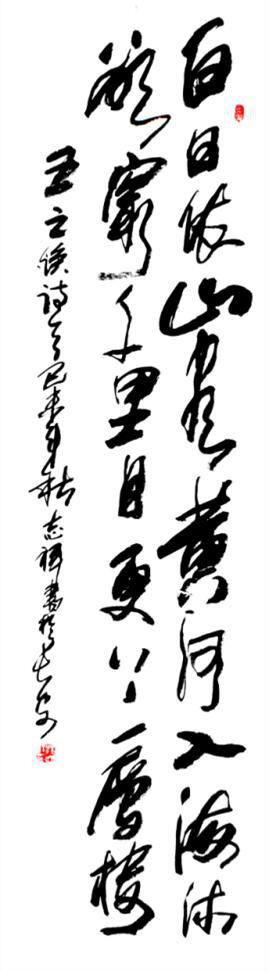 白日依山盡黄河入海流
欲窮千里目更上一層樓
王之渙詩己未年秋志祥書於長安